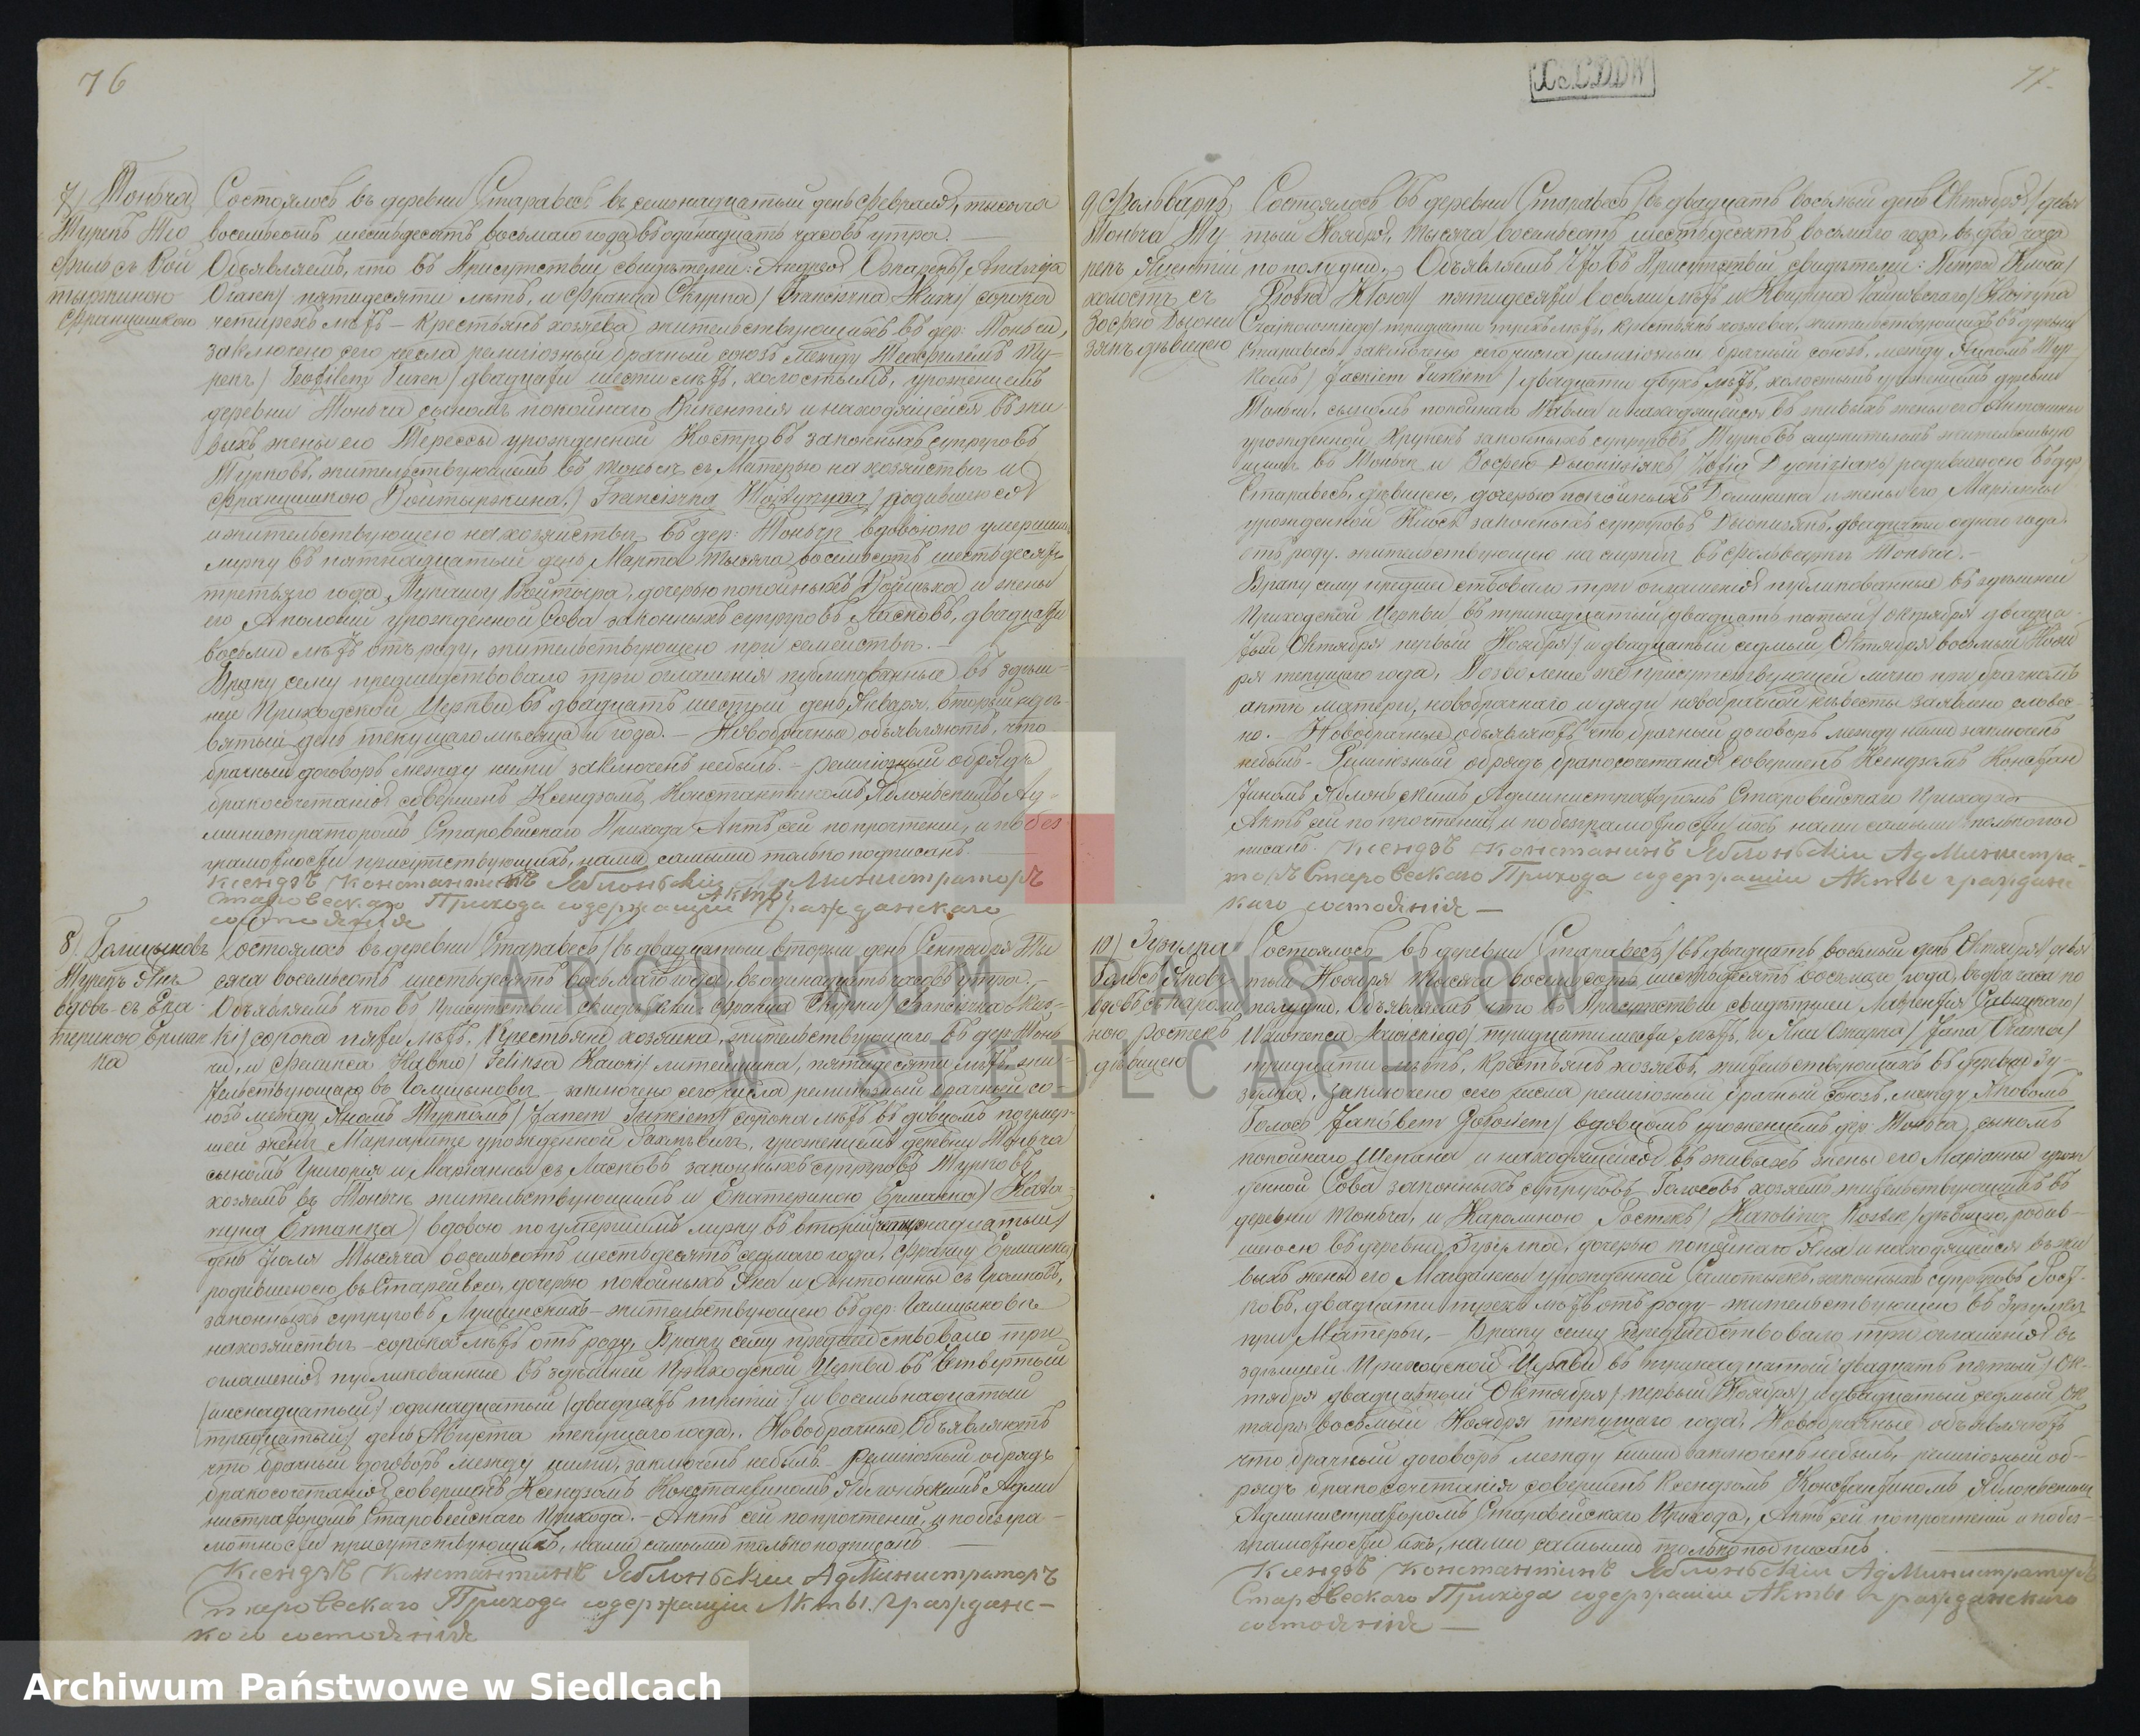 76
7) Тоньча
Турекъ Тео
филь съ Вой
тыржиною
Францишкою
Состоялось въ деревни Старавесь въ семнадцатый день Февраля, тысяча
восемьсотъ шестьдесятъ восьмаго года въ одинадцать часовъ утра. —
Объявляемъ, что въ Присутствіи свидѣтелей: Андрея /Andrzeja
пятидесяти лѣтъ, и Франца Скурка / Franciszka Skurki / сорока
четырехъ лѣтъ – крестьянъ хозяева жительствующихъ въ дер: Тоньчи,
заключено сего числа религіозный брачный союзъ между Теофилемъ Ту-
рекъ / Teofilem Turek / двадцати шести лѣтъ, холостымъ, уроженцемъ
деревни Тоньча сыномъ покойнаго Викентія и находящейся въ жи
выхъ жены его Терессы урожденной законныхъ супруговъ
Турковъ, жительствующимъ въ Тоньчи съ Матерью на хозяйствѣ и
Францишкою / Franciszką / родившеюся
и жительствующею на хозяйствѣ въ дер: Тоньчѣ вдовою по умершимъ
мужу въ пятнадцатый день Марта Тысяча восемьсотъ шестьдесятъ
третьяго года дочерью покойныхъ и жены
его Аполоніи урожденной Сова законныхъ супруговъ Ласковъ, двадцати
восьми лѣтъ отъ роду, жительствующею при семействѣ. –
Браку сему предшествовало три оглашенія публикованные въ здѣш-
ней Приходской Церкви въ двадцать шестый день Января, вторый и де-
вятый день текущаго мѣсяца и года. – Новобрачные объявляютъ, что
брачный договоръ между ними заключенъ небылъ. – религіозный обрядъ
бракосочетанія совершенъ Ксендзомъ Константиномъ Яблоньскимъ Ад-
министраторомъ Старовейскаго Прихода. Актъ сей по прочтеніи, и по без
грамотности присутствующихъ, нами самыми только подписанъ
Ксендзъ Константинъ Яблоньскіи Администраторъ
Старовескаго Прихода содержащіи Акты Гражданскаго
состоянія
8) Галицыновъ
Турекъ Янъ
вдовъ съ Ека-
териною Ерман
ка
Состоялось въ деревни Старавесь / въ двадцатый вторый день Сентября Ты
сяча восемьсотъ шестьдесятъ восьмаго года, въ одинадцать часовъ утра.
Объявляемъ что въ присутствіи свидѣтелей Франца Скурки / Franciszka Skur-
ki / сорока пяти лѣтъ, Крестьяна хозяина, жительствующаго въ дер: Тонь
чи, и Феликса Кавки / Feliksa Kawki / пятидесяти лѣтъ, жи-
тельствующаго въ Галицыновѣ – заключено сего числа религіозный брачный со-
юзъ между Яномъ Туркомъ / Janem Turkiem / сорока лѣтъ вдовцомъ по умер-
шей женѣ Маргарите урожденной уроженцемъ деревни Тоньча
сыномъ Григорія и Маріанны съ Ласковъ законныхъ супруговъ Турковъ
хозяемъ въ Тоньчи жительствующимъ и Екатериною Ерманка / Kata-
rzyna / вдовою по умершимъ мужу въ вторый /четырнадцатый/
день Іюля Тысяча восемьсотъ шестьдесятъ седмаго года, Францу Ерманки
родившеюся въ Старейвси, дочерью покойныхъ Яна и Антонины съ
законныхъ супруговъ – жительствующею въ дер: Галицыновѣ
на хозяйствѣ – сорока лѣтъ отъ роду, Браку сему предшедствовало три
оглашенія публикованные въ здѣшней Приходской Церкви въ Четвертый
/шеснадцатый/ одинадцатый /двадцать третій/ и восемьнадцатый
/тридцатый/ день Августа текущаго года. Новобрачные Объявляютъ
что брачный договоръ между ними, заключенъ небылъ. – Религіозный обрядъ
бракосочетанія совершенъ Ксендзомъ Константиномъ Яблоньскимъ Адми
нистраторомъ Старовейскаго Прихода. – Актъ сей по прочтеніи, и по безгра-
мотности присутствующихъ, нами самыми только подписанъ —
Ксендзъ Константинъ Яблоньскіи Администраторъ
Старовескаго Прихода содержащіи Акты Гражданс-
кого состоянія
77.
9. Фольваркъ
Тоньча Ту
рекъ
холостъ съ
Зофею Дыони
зякъ дѣвицею
Состоялось въ деревни Старавесь / въ двадцать восьмый день Октября / девя
тый Ноября, Тысяча восемьсотъ шестьдесятъ восьмаго года, въ два часа
по полудни. Объявляемъ что въ Присутствіи свидѣтели: Петра Клоса /
Piotra Kłosa / пятидесяти восьми лѣтъ и Чайковскаго /
Czajkowskiego / тридцати трехъ лѣтъ, крестьянъ хозяева, жительствующихъ въ деревни
Старавесь, заключено сего числа религіозный брачный союзъ, между Тур
комъ / Jackiem Turkiem / двадцати двухъ лѣтъ, холостымъ уроженцемъ деревни
Тоньчи, сыномъ покойнаго Павла и находящейся въ живыхъ жены его Антонины
урожденной законныхъ супруговъ Турковъ служителемъ жительствую
щимъ въ Тоньчи и Зофею Дыонизякъ / Zofia Dyoniziak / родившеюся въ дер
Старавесь, дѣвицею, дочерью покойныхъ Доминика и жены его Маріанны
урожденной Клосъ законныхъ супруговъ Дыонизякъ, двадцати одного года
отъ роду, жительствующею на службѣ въ Фольваркѣ Тоньча. –
Браку сему предшедствовало три оглашенія публикованные въ здѣшней
Приходской Церкви въ тринадцатый /двадцать пятый/ Октября двадца-
тый Октября первый Ноября / и двадцатый седмый Октября восьмый Нояб
ря текущаго года. Позволеніе же присутствующей лично при брачномъ
актѣ матери, новобрачнаго и дяди новобрачной невесты заявлено словес-
но. – Новобрачные объявляютъ что брачный договоръ между ними заключенъ
небылъ. Религіозный обрядъ бракосочетанія совершенъ Ксендзомъ Констан
тиномъ Яблоньскимъ Администраторомъ Старовейскаго Прихода
Актъ сей по прочтеніи, и по безграмотности ихъ нами самыми только под
писанъ. Ксендзъ Константинъ Яблоньскіи Администра-
торъ Старовескаго Прихода содержащіи Акты граждан
каго состоянія —
10)
Голосъ Яковъ
вдовъ съ Кароли
ною Ростекъ
дѣвицею
Состоялось въ деревни Старавесь / въ двадцать восьмый день Октября / девя
тый Ноября Тысяча восемьсотъ шестьдесятъ восьмаго года, въ два часа по
полудни. Объявляемъ что въ Присутствіи свидѣтелей Лаврентія
Wawrzenca / тридцати шести лѣтъ, и Яна / Jana
тридцати лѣтъ, Крестьянъ хозяевъ, жительствующихъ въ деревни Зу-
заключено сего числа религіозный брачный союзъ, между Яковомъ
Голосъ / Jakóbem Gołosiem / вдовцомъ уроженцемъ дер: Тоньча, сыномъ
покойнаго Щепана и находящейся въ живыхъ жены его Маріанны урож
денной Сова законныхъ супруговъ Голосовъ хозяемъ жительствующимъ въ
деревни Тоньча, и Каролиною Ростекъ / Karolina Rostek / дѣвицею, родив-
шеюся въ деревни дочерью покойнаго Яна и находящейся въ жи
выхъ жены его Магдалены урожденной законныхъ супруговъ Рост-
ковъ, двадцати трехъ лѣтъ отъ роду – жительствующею въ
при Матери, – Браку сему предшедствовало три оглашенія въ
здѣшней Приходской Церкви въ тринадцатый двадцать пятый / Ок-
тября двадцатый Октября / первый Ноября / и двадцатый седмый Ок
тября восьмый Ноября текущаго года. Новобрачные объявляютъ
что брачный договоръ между ними заключенъ небылъ, – религіозный об-
рядъ бракосочетанія совершенъ Ксендзомъ Константиномъ Яблоньскимъ
Администраторомъ Старовейскаго Прихода, Актъ сей по прочтеніи и по без-
грамотности ихъ, нами самыми только подписанъ.
Ксендзъ Константинъ Яблоньскіи Администраторъ
Старовескаго Прихода содержащіи Акты Гражданскаго
состоянія —
ARCHIWUM PAŃSTWOWE
W SIEDLCACH
Archiwum Państwowe w Siedlcach